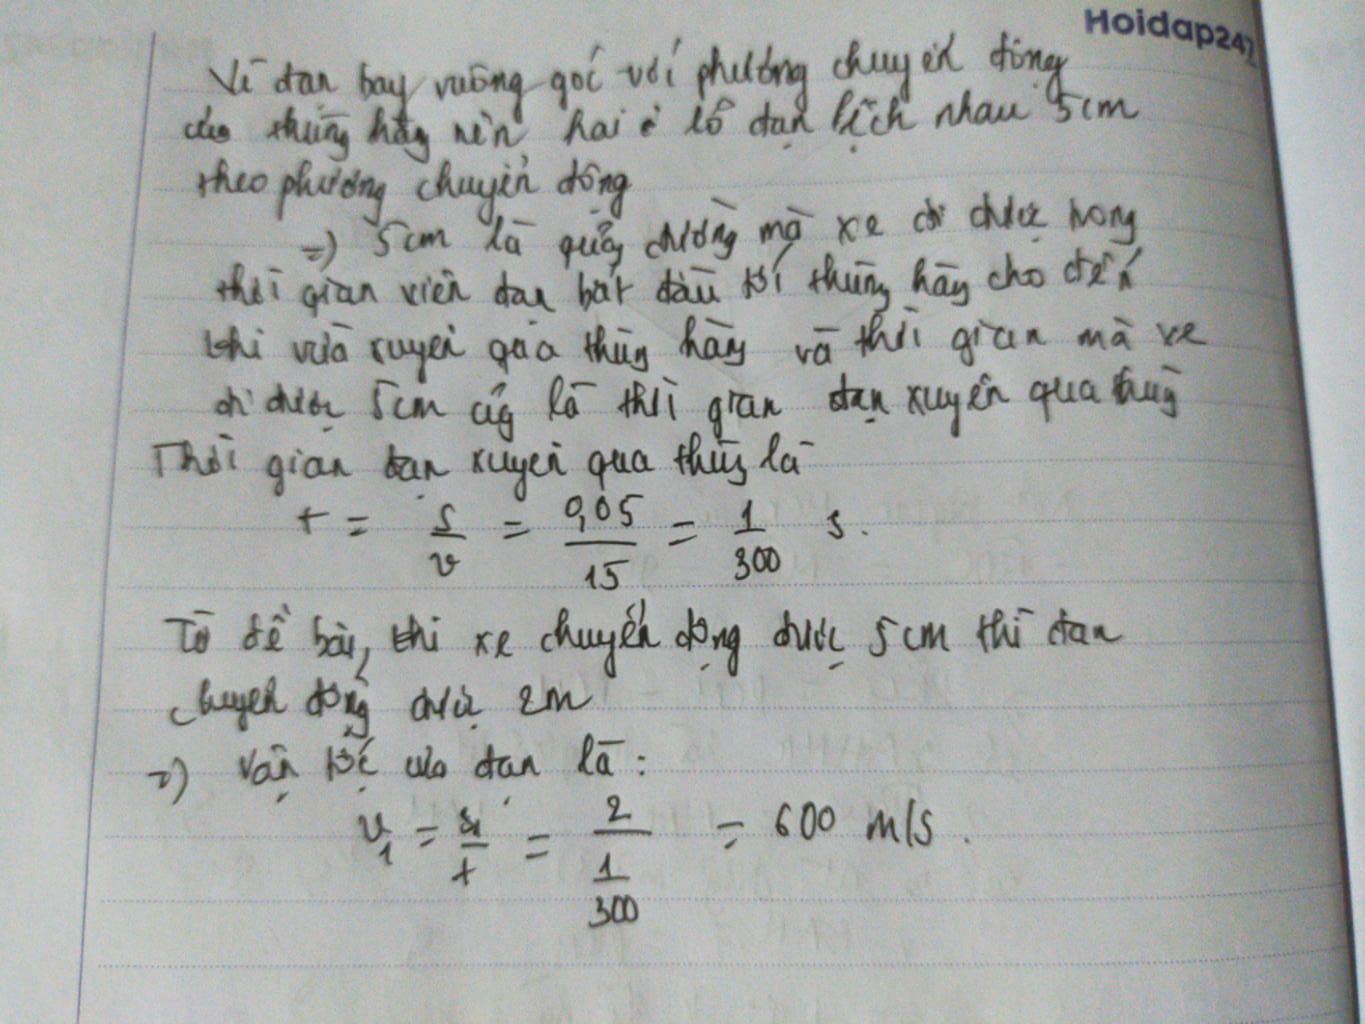 Hoidap247
Vì đạn bay vuông góc với phương chuyển động
của thùng hàng nên hai lỗ đạn lệch nhau 5cm
theo phương chuyển động
=) 5cm là quãng đường mà xe đi được trong
thời gian viên đạn bắt đầu tới thùng hàng cho đến
khi vừa xuyên qua thùng hàng và thời gian mà xe
đi được 5cm cũg là thời gian đạn xuyên qua thùng
Thời gian đạn xuyên qua thùng là
t = s/v = 0,05/15 = 1/300 s.
Từ đề bài, khi xe chuyển động được 5cm thì đạn
chuyển động được 2m
=) Vận tốc của đạn là:
v₁ = s₁/t = 2/(1/300) = 600 m/s.